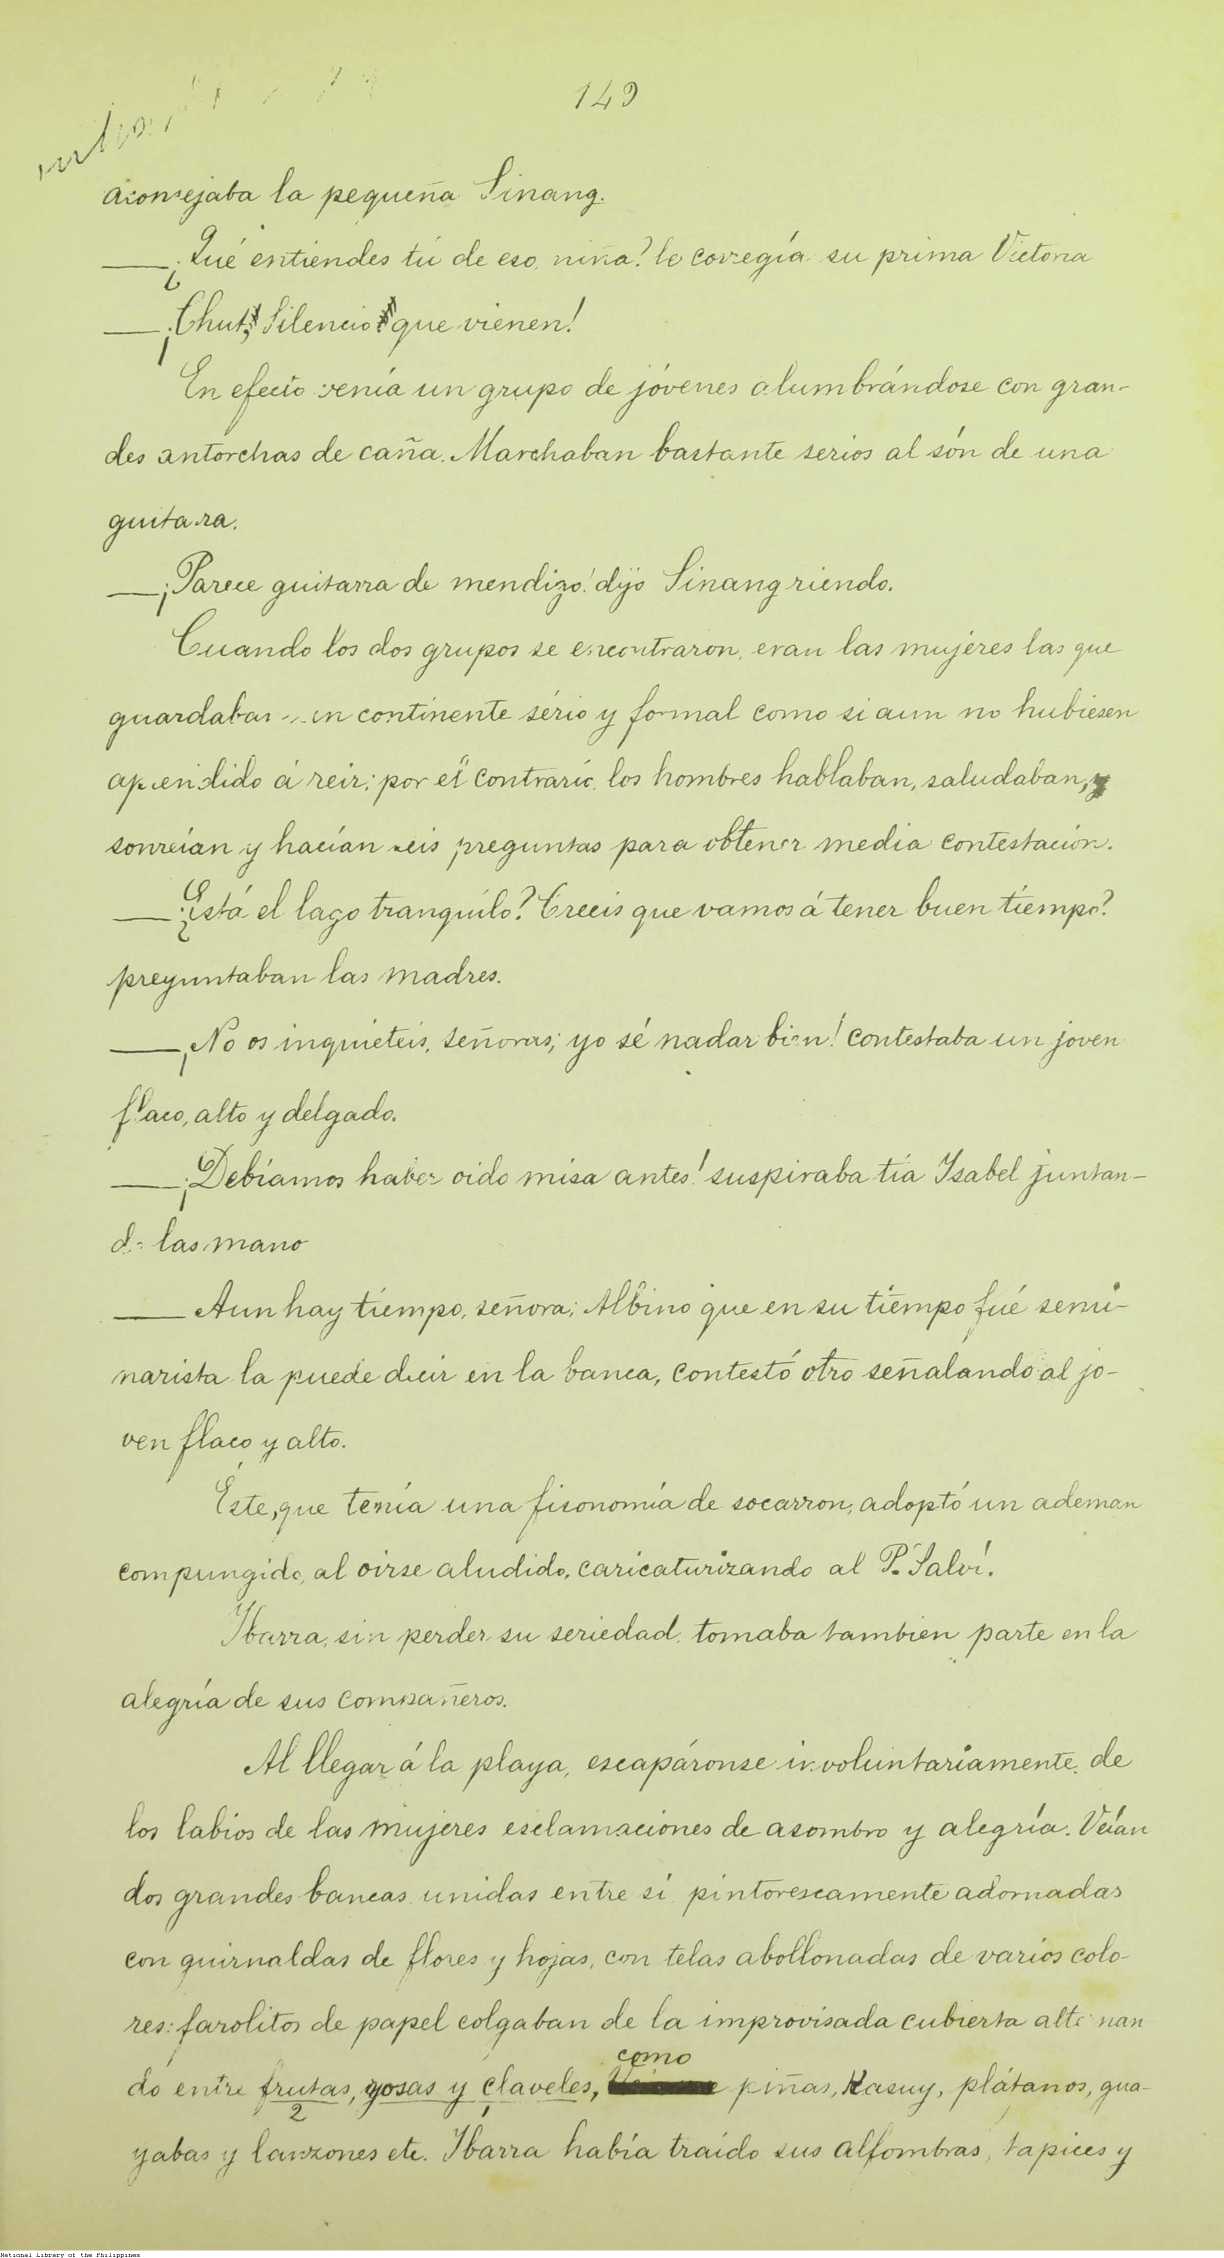 149
aconsejaba la pequeña Sinang.
—¿Qué entiendes tú de eso, niña? le corregía su prima Victoria
—¡Chut, Silencio que vienen!
En efecto venía un grupo de jóvenes alumbrándose con gran-
des antorchas de caña. Marchaban bastante serios al són de una
guitarra.
—¡Parece guitarra de mendigo! dijo Sinang riendo.
Cuando los dos grupos se encontraron, eran las mujeres las que
guardaban un continente sério y formal como si aun no hubiesen
aprendido á reir; por el contrario, los hombres hablaban, saludaban, y
sonreían y hacían seis preguntas para obtener media contestación.
—¿Está el lago tranquilo? Creeis que vamos á tener buen tiempo?
preguntaban las madres.
—¡No os inquieteis, señoras; yo sé nadar bien! contestaba un joven
flaco, alto y delgado.
—¡Debíamos haber oido misa antes! suspiraba tía Isabel juntan-
do las mano
—Aun hay tiempo, señora; Albino que en su tiempo fué semi-
narista la puede decir en la banca, contestó otro señalando al jo-
ven flaco y alto.
Éste, que tenía una fisonomía de socarron, adoptó un ademan
compungido, al oirse aludido, caricaturizando al P. Salví.
Ibarra, sin perder su seriedad, tomaba tambien parte en la
alegría de sus compañeros.
Al llegar á la playa, escapáronse involuntariamente de
los labios de las mujeres esclamaciones de asombro y alegría. Veían
dos grandes bancas unidas entre sí pintorescamente adornadas
con guirnaldas de flores y hojas, con telas abollonadas de varios colo-
res: farolitos de papel colgaban de la improvisada cubierta alternan
como
do entre frutas, rosas y claveles, piñas, Kasuy, plátanos, gua-
2
yabas y lanzones etc. Ibarra había traído sus alfombras, tapices y
National Library of the Philippines